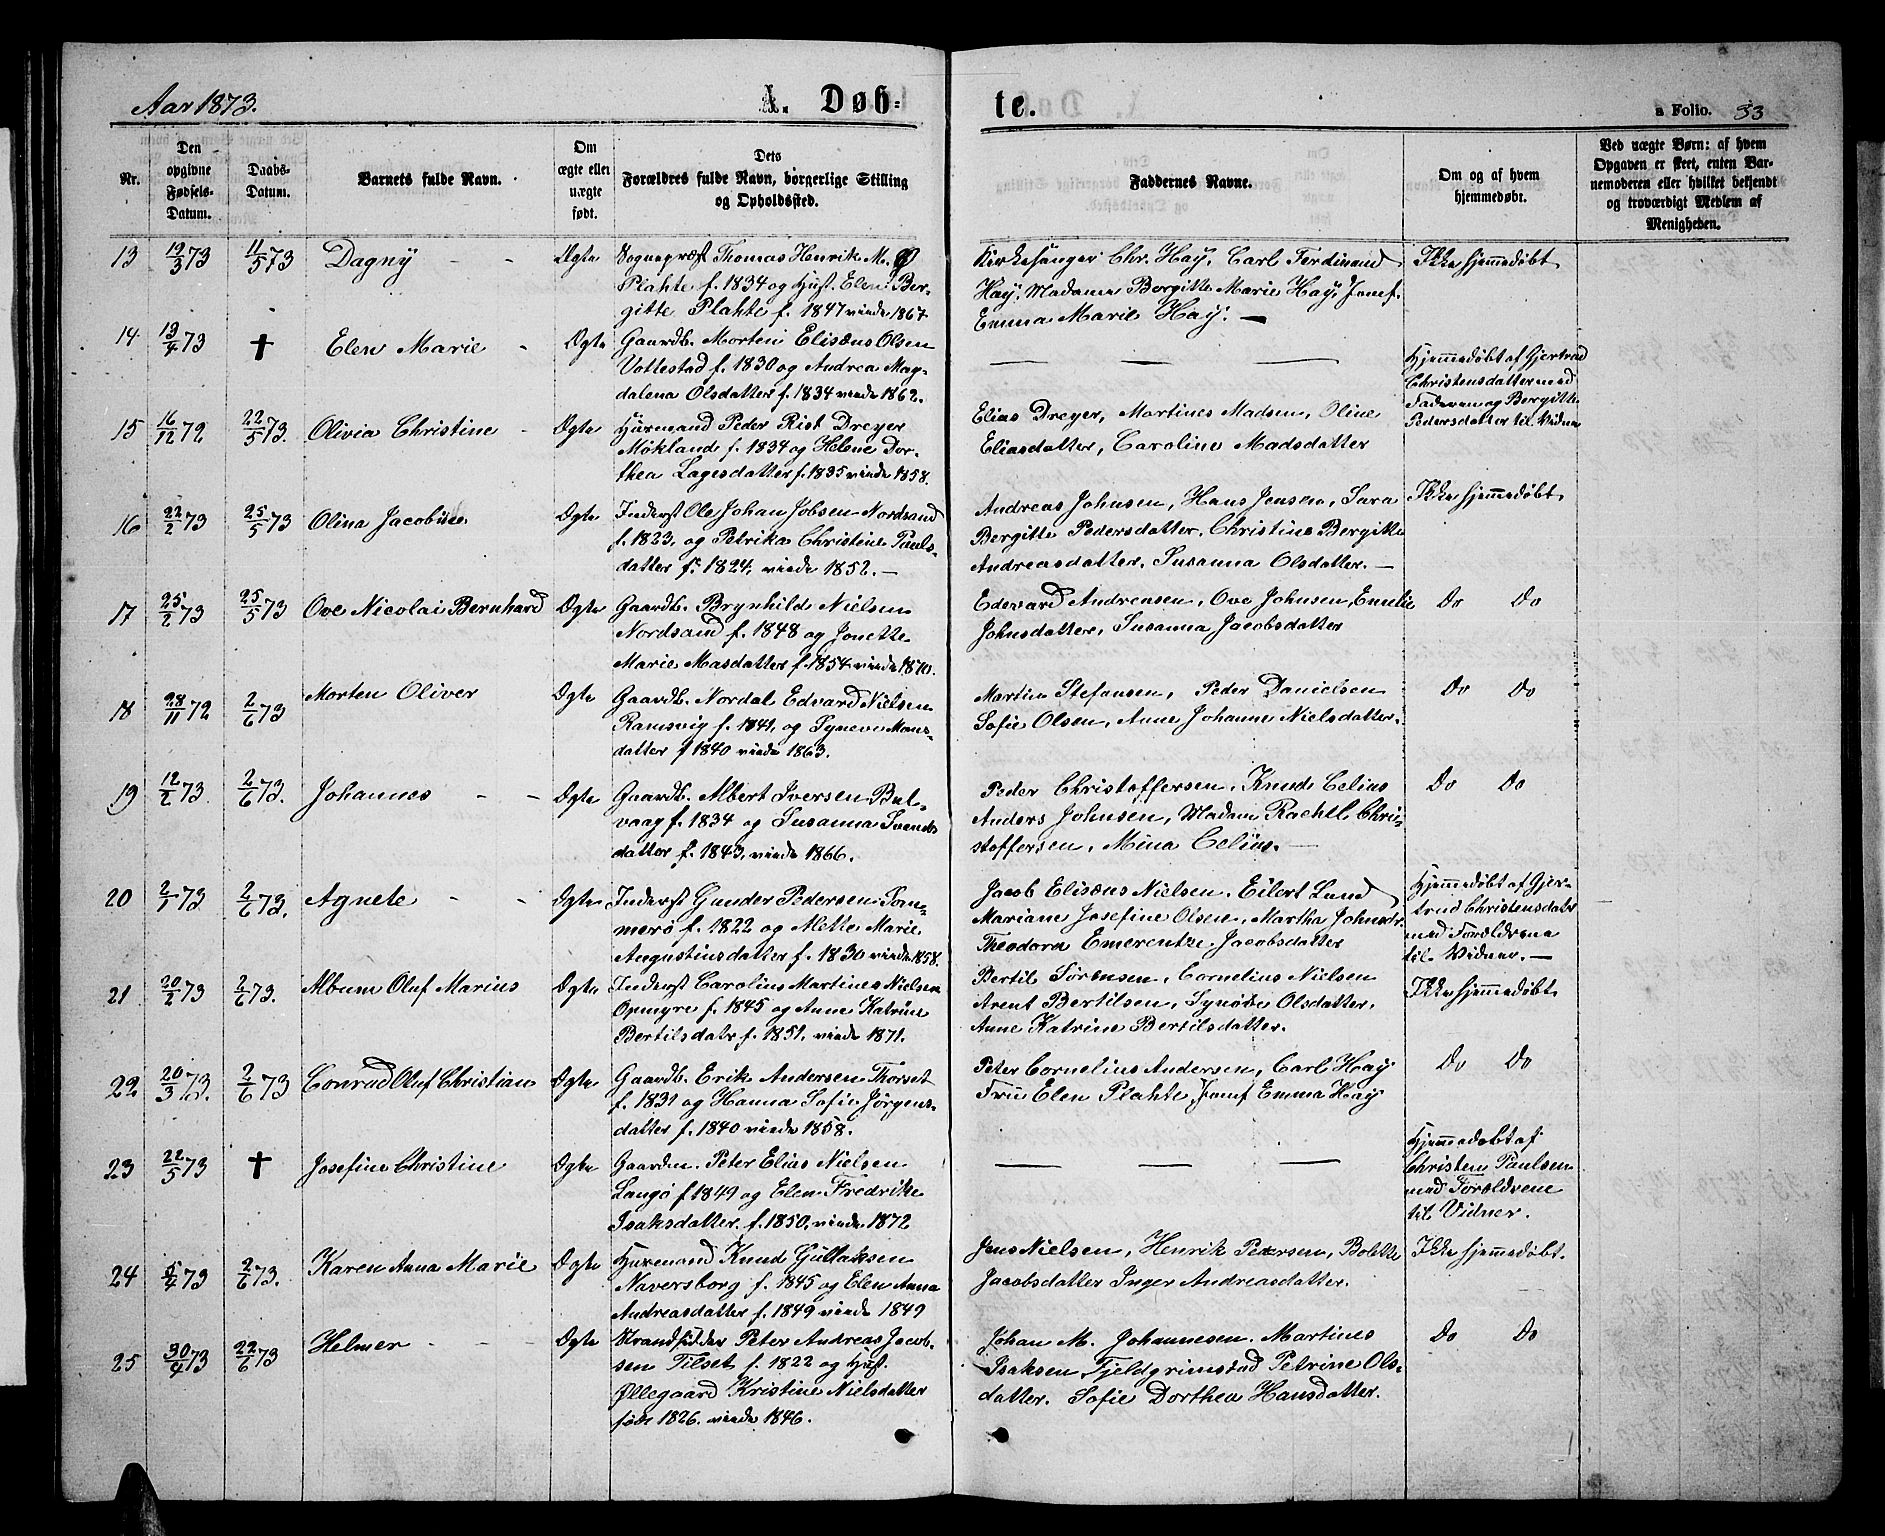 Aar 1873.
A. Døb-
te.
a Folio. 33
Nr.
Den opgivne Fødsels-Datum.
Daabs-Datum.
Barnets fulde Navn.
Om ægte eller uægte født.
Dets Forældres fulde Navn, borgerlige Stilling og Opholdssted.
Faddernes Navne.
Om og af hvem hjemmedøbt.
Ved uægte Børn: af hvem Opgaven er skeet, enten Barnemoderen eller hvilket bekjendt og troværdigt Medlem af Menigheden.
13 19/3 73 11/5 73 Dagny - - Ægte
Sognepræst Thomas Henrik M.
Plahte f. 1834 og Hust. Elen Ber-
gitte Plahte f. 1847 viede 1867
Kirkesanger Chr. Hay, Carl Ferdinand
Hay, Madame Bergitte Marie Hay, Jomf.
Emma Marie Hay. —
Ikke hjemmedøbt
14 13/4 73 † Elen Marie - Ægte
Gaardb. Morten Elisæus Olsen
Vottestad f. 1830 og Andrea Mag-
dalena Olsdatter f. 1834 viede 1862.
— — —
Hjemmedøbt af Gjertrud
Christensdatter med
Faderen og Bergitte
Pedersdatter til Vidne
15 16/12 72 22/5 73. Olivia Christine - Ægte
Huusmand Peder Rist Dreyer
Mökland f. 1834 og Helene Dor-
thea Lagesdatter f. 1835 viede 1858.
Elias Dreyer, Martines Madsen, Oline
Eliasdatter, Caroline Madsdatter
16 22/2 73 25/5 73 Olina Jacobine Ægte
Inderst Ole Johan Jobsen Nordsand
f. 1823, og Petrika Christine Pauls-
datter f. 1824, viede 1852. —
Andreas Johnsen, Hans Jensen, Sara
Bergitte Pedersdatter, Christine Bergitte
Andreasdatter, Susanna Olsdatter. —
Ikke hjemmedøbt
17 25/2 73 25/5 73 Ove Nicolai Bernhard Ægte
Gaardb. Brynhild Nielsen
Nordsand f. 1848 og Jonette
Marie Masdatter f. 1854 viede 1870.
Edevard Andreasen, Ove Johnsen, Emelie
Johnsdatter, Susanna Jacobsdatter
Do Do
18 28/11 72 2/6 73 Morten Oliver Ægte
Gaardb. Nordal Edvard Nielsen
Ramsvig f. 1841, og Synevi Mons-
datter f 1840 viede 1863.
Martin Stefansen, Peder Danielsen
Sofie Olsen, Anne Johanne Nielsdatter.
Do Do
19 12/2 73. 2/6 73. Johannes - - Ægte
Gaardb. Albert Iversen Bul-
vaag f. 1834 og Susanna Svends
datter f. 1843, viede 1866.
Peder Christoffersen, Knud Celius
Anders Johnsen, Madam Rachel Chri-
stoffersen, Mina Celius. —
Do Do
20 2/1 73 2/6 73. Agnete - - Ægte
Inderst Gunder Pedersen Som-
merö f. 1822 og Mette Marie
Augustinsdatter f. 1830 viede 1858.
Jacob Elisæus Nielsen, Eilert Lund
Mariane Josefine Olsen, Martha Johnsdr.
Theodora Emerentze Jacobsdatter
Hjemmedöbt af Gjer-
trud Christensdatter
med Forældrene
til Vidner. —
21 20/2 73 2/6 73. Album Oluf Marius Ægte
Inderst Carolius Martines Nielsen
Opmyre f. 1845 og Anne Katrine
Bertilsdatr f. 1851, viede 1871.
Bertil Sörensen, Cornelius Nielsen
Arent Bertilsen, Synöve Olsdatter,
Anne Katrine Bertilsdatter.
Ikke hjemmedøbt
22 20/3 73. 2/6 73 Conrad Oluf Christian Ægte
Gaardb. Erik Andersen Thorset
f. 1831 og Hanna Sofie Jörgens-
datter f. 1840 viede 1858.
Peter Cornelius Andersen, Carl Hay
Fru Elen Plahte, Jomf Emma Hay
Do Do
23 22/5 73 † Josefine Christine Ægte
Gaardm. Peter Elias Nielsen
Langö f 1849 og Elen Fredrike
Isaksdatter f. 1850, viede 1872
— — —
Hjemmedøbt af
Christen Paulsen
med Forældrene
til Vidner.
24 5/4 73 2/6 73. Karen Anna Marie Ægte
Husmand Knud Gullaksen
Naversborg f. 1845 og Elen Anna
Andreasdatter f. 1849 viede 1849
Jens Nielsen, Henrik Petersen, Bolette
Jacobsdatter Inger Andreasdatter.
Ikke hjemmedøbt.
25 30/4 73 22/6 73 Helmer - - Ægte
Strandsidder Peter Andreas Jacob-
sen Tilset f. 1822 og Hust.
Øllegaard Kristine Nielsdatter
föde 1826. viede 1846.
Johan M. Johannesen. Martines
Isaksen Fjeldgrimstad Petrine Ols-
datter. Sofie Dorthea Hansdatter.
Do Do